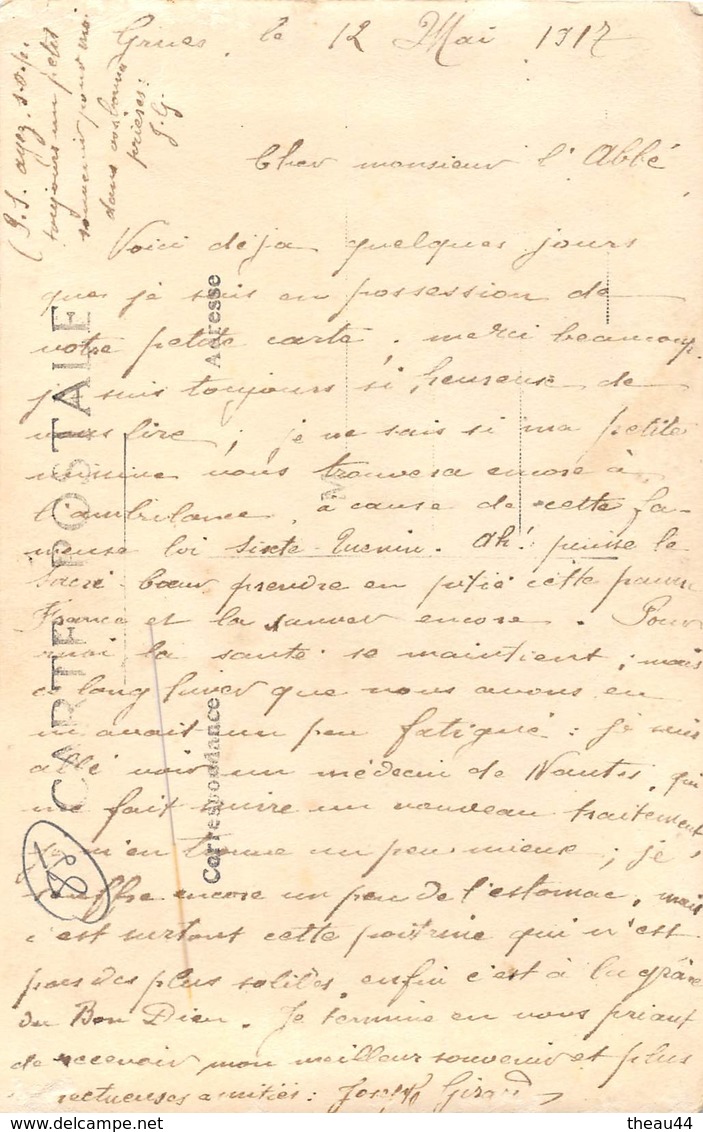 Grues, le 12 Mai 1917
Cher monsieur l'Abbé
Voici déja quelques jours
que je suis en possession de
votre petite carte. merci beaucoup
je suis toujours si heureuse de
vous lire; je ne sais si ma petite
missive vous trouvera encore à
l'ambulance, à cause de cette fa-
meuse loi Sixte-Quenin. Ah! puisse le
Sacré Cœur prendre en pitié cette pauvre
France et la sauver encore. Pour
moi la santé se maintient; mais
ce long hiver que nous avons eu
m'avait un peu fatigué: je suis
allé voir un médecin de Nantes, qui
me fait suivre un nouveau traitement
je m'en trouve un peu mieux; je
souffre encore un peu de l'estomac, mais
c'est surtout cette poitrine qui n'est
pas des plus solides, enfin c'est à la grâce
du Bon Dieu. Je termine en vous priant
de recevoir mon meilleur souvenir et plus
affectueuses amitiés: Joseph Girard
(P.S. ayez s.o.p.
toujours un petit
souvenir pour moi
dans vos bonnes
prières:
J.G
CARTE POSTALE
Correspondance
Adresse
M
© theau44